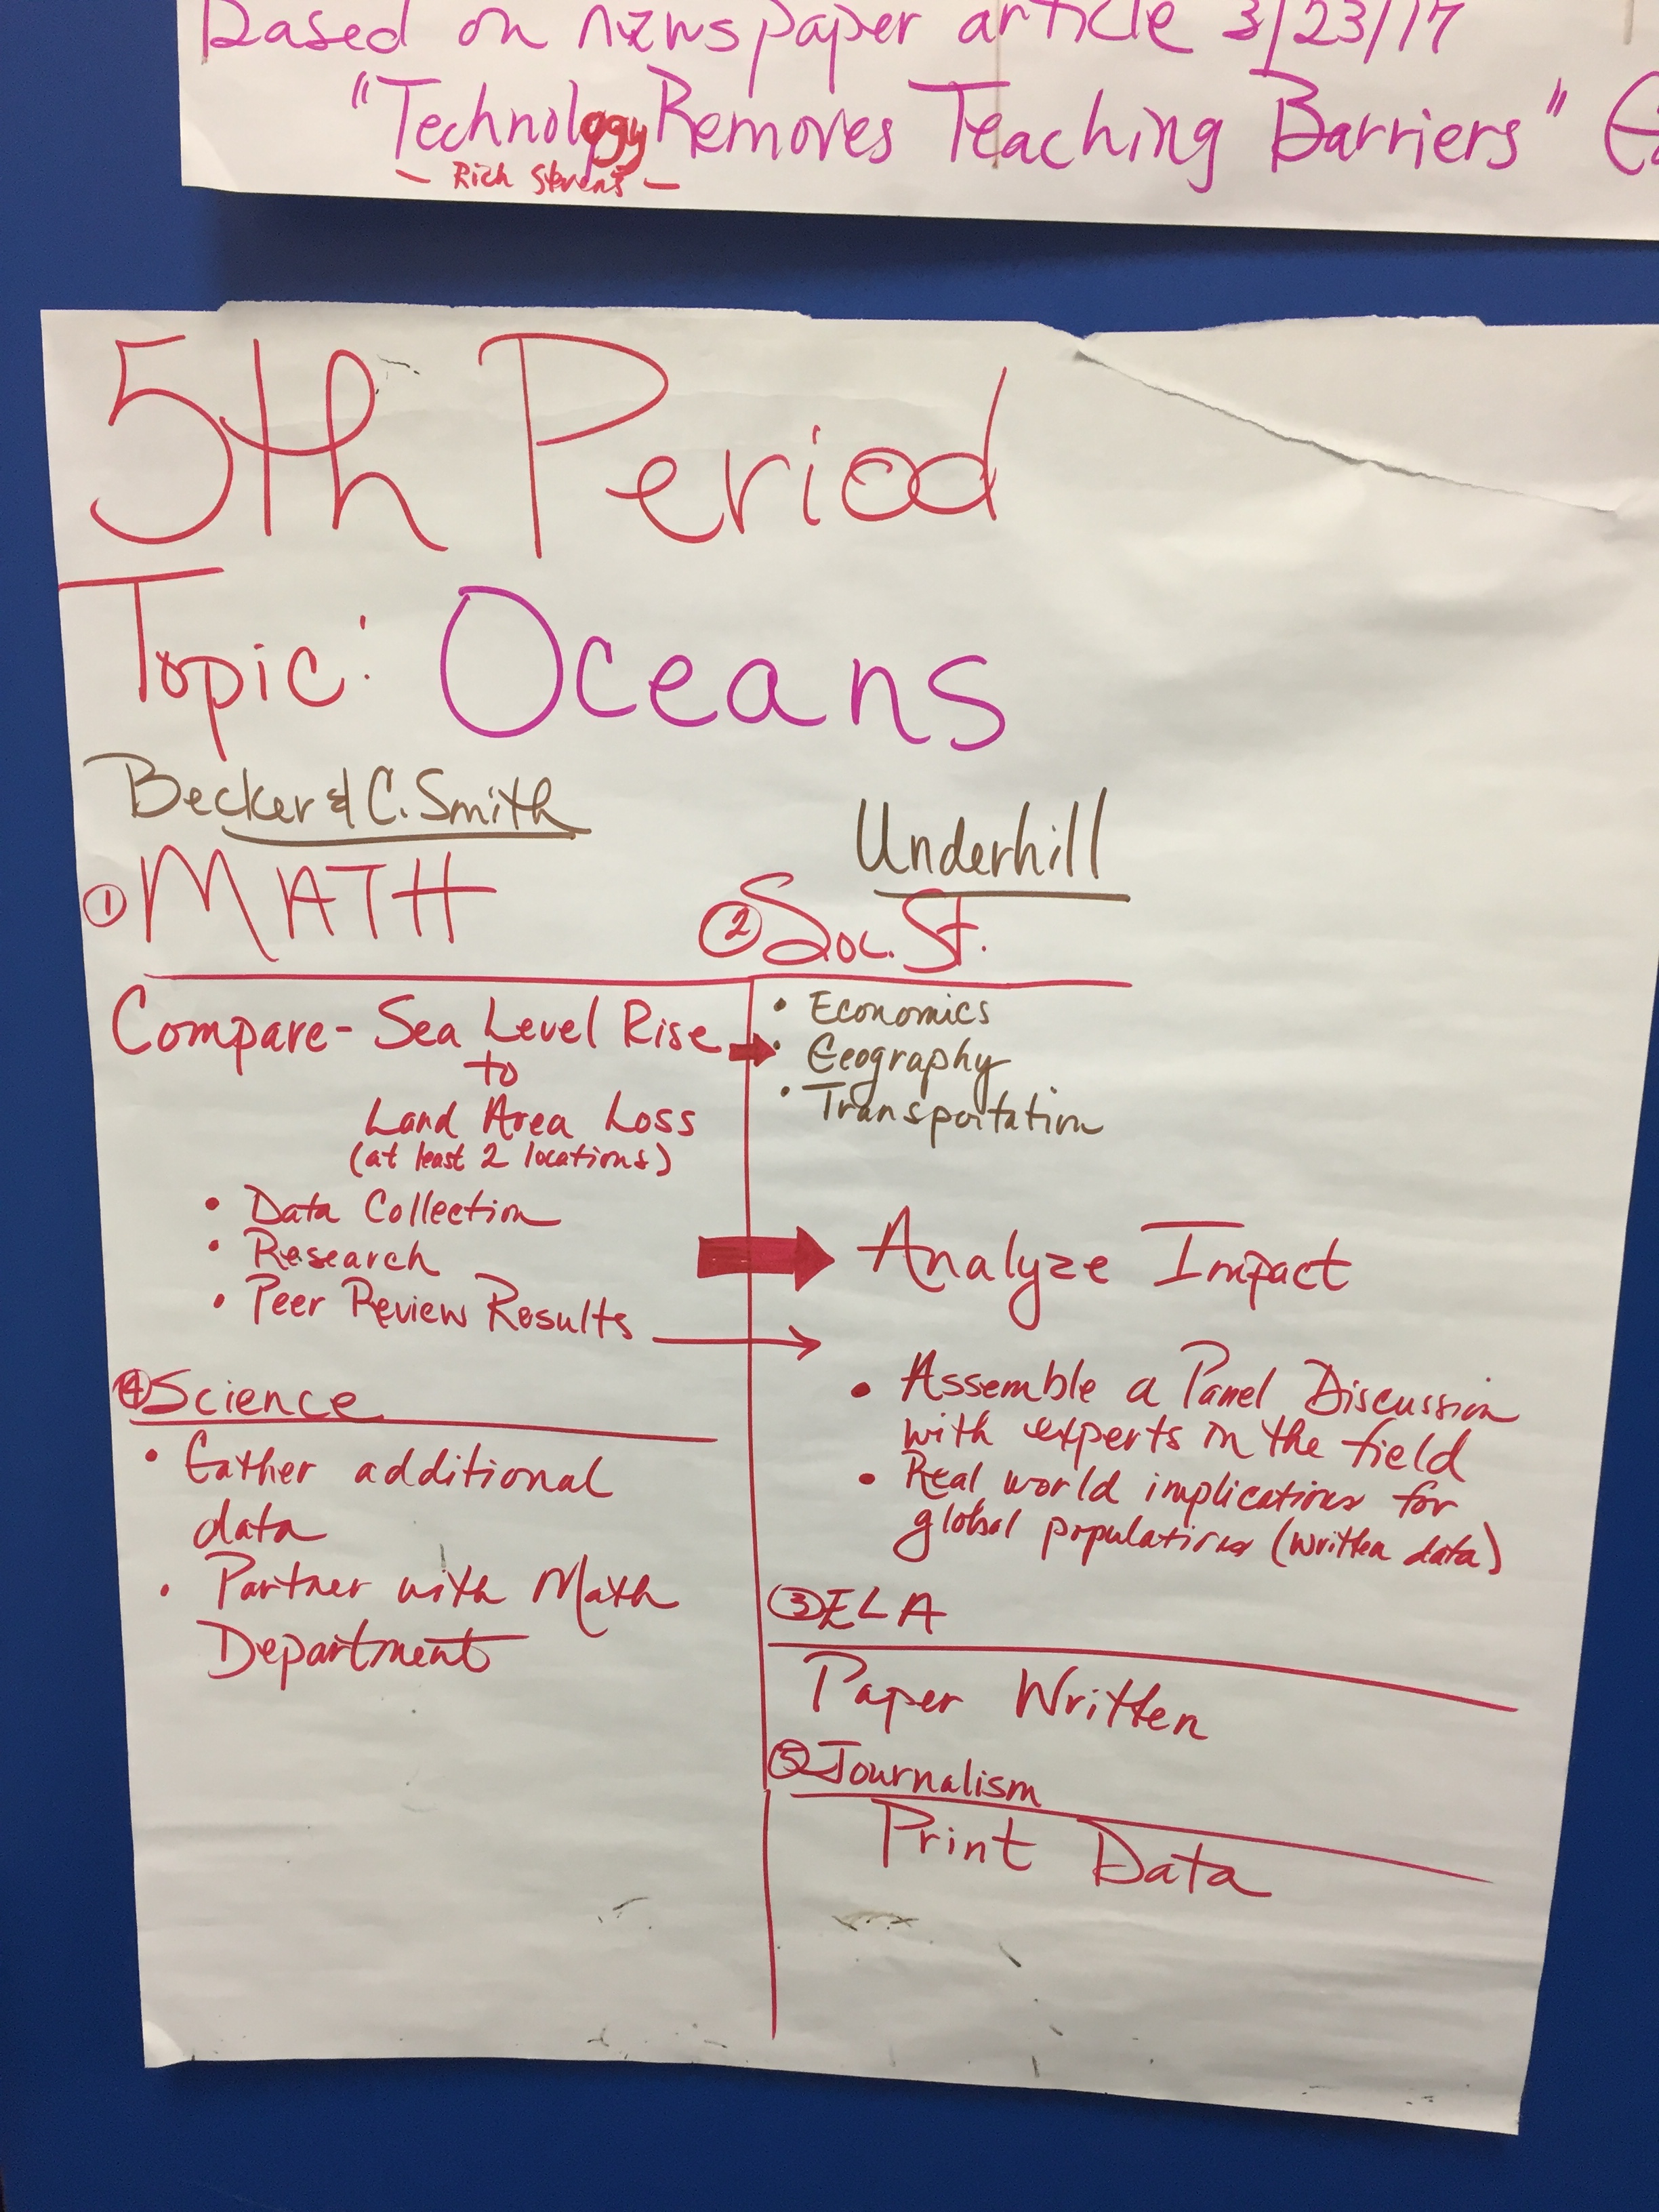 Based on newspaper article 3/23/17
"Technology Removes Teaching Barriers"
— Rich Stevens —
5th Period
Topic: Oceans
Becker & C. Smith
① MATH
Compare - Sea Level Rise
to
Land Area Loss
(at least 2 locations)
• Data Collection
• Research
• Peer Review Results
④ Science
• Gather additional
data
• Partner with Math
Department
Underhill
② Soc. St.
• Economics
• Geography
• Transportation
Analyze Impact
• Assemble a Panel Discussion
with experts in the field
• Real world implications for
global populations (written data)
③ ELA
Paper Written
⑤ Journalism
Print Data